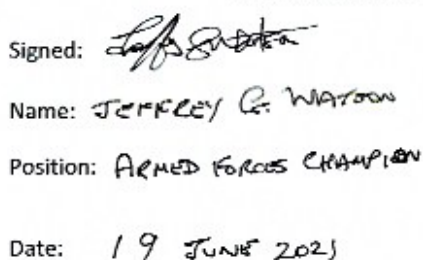 Signed:
Name: JEFFREY G. WATSON
Position: ARMED FORCES CHAMPION
Date: 19 JUNE 2021